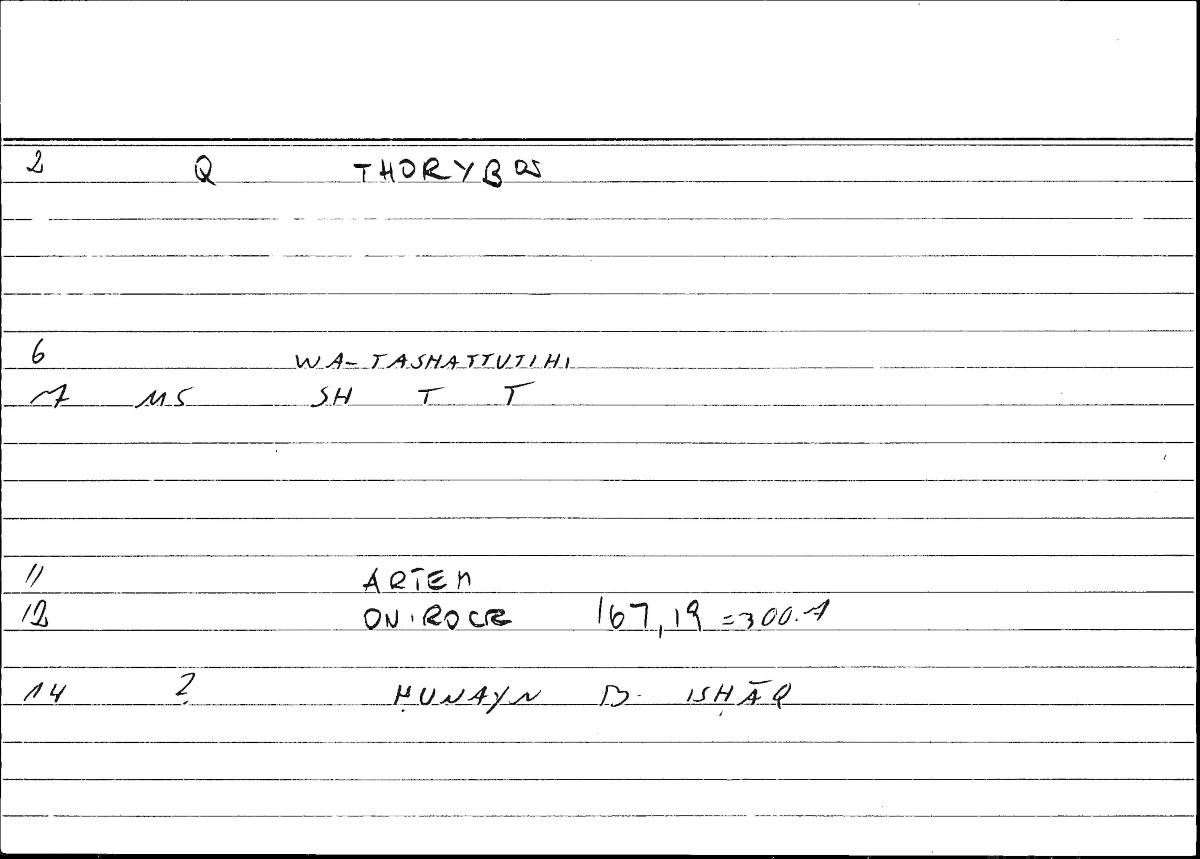 2 Q THORYBOS
6 WA-TASHATTUTIHI
7 MS SH T T
11 ARTEM
12 ONIROCR 167,19 = 300.7
14 ? ḤUNAYN B. ISḤĀQ